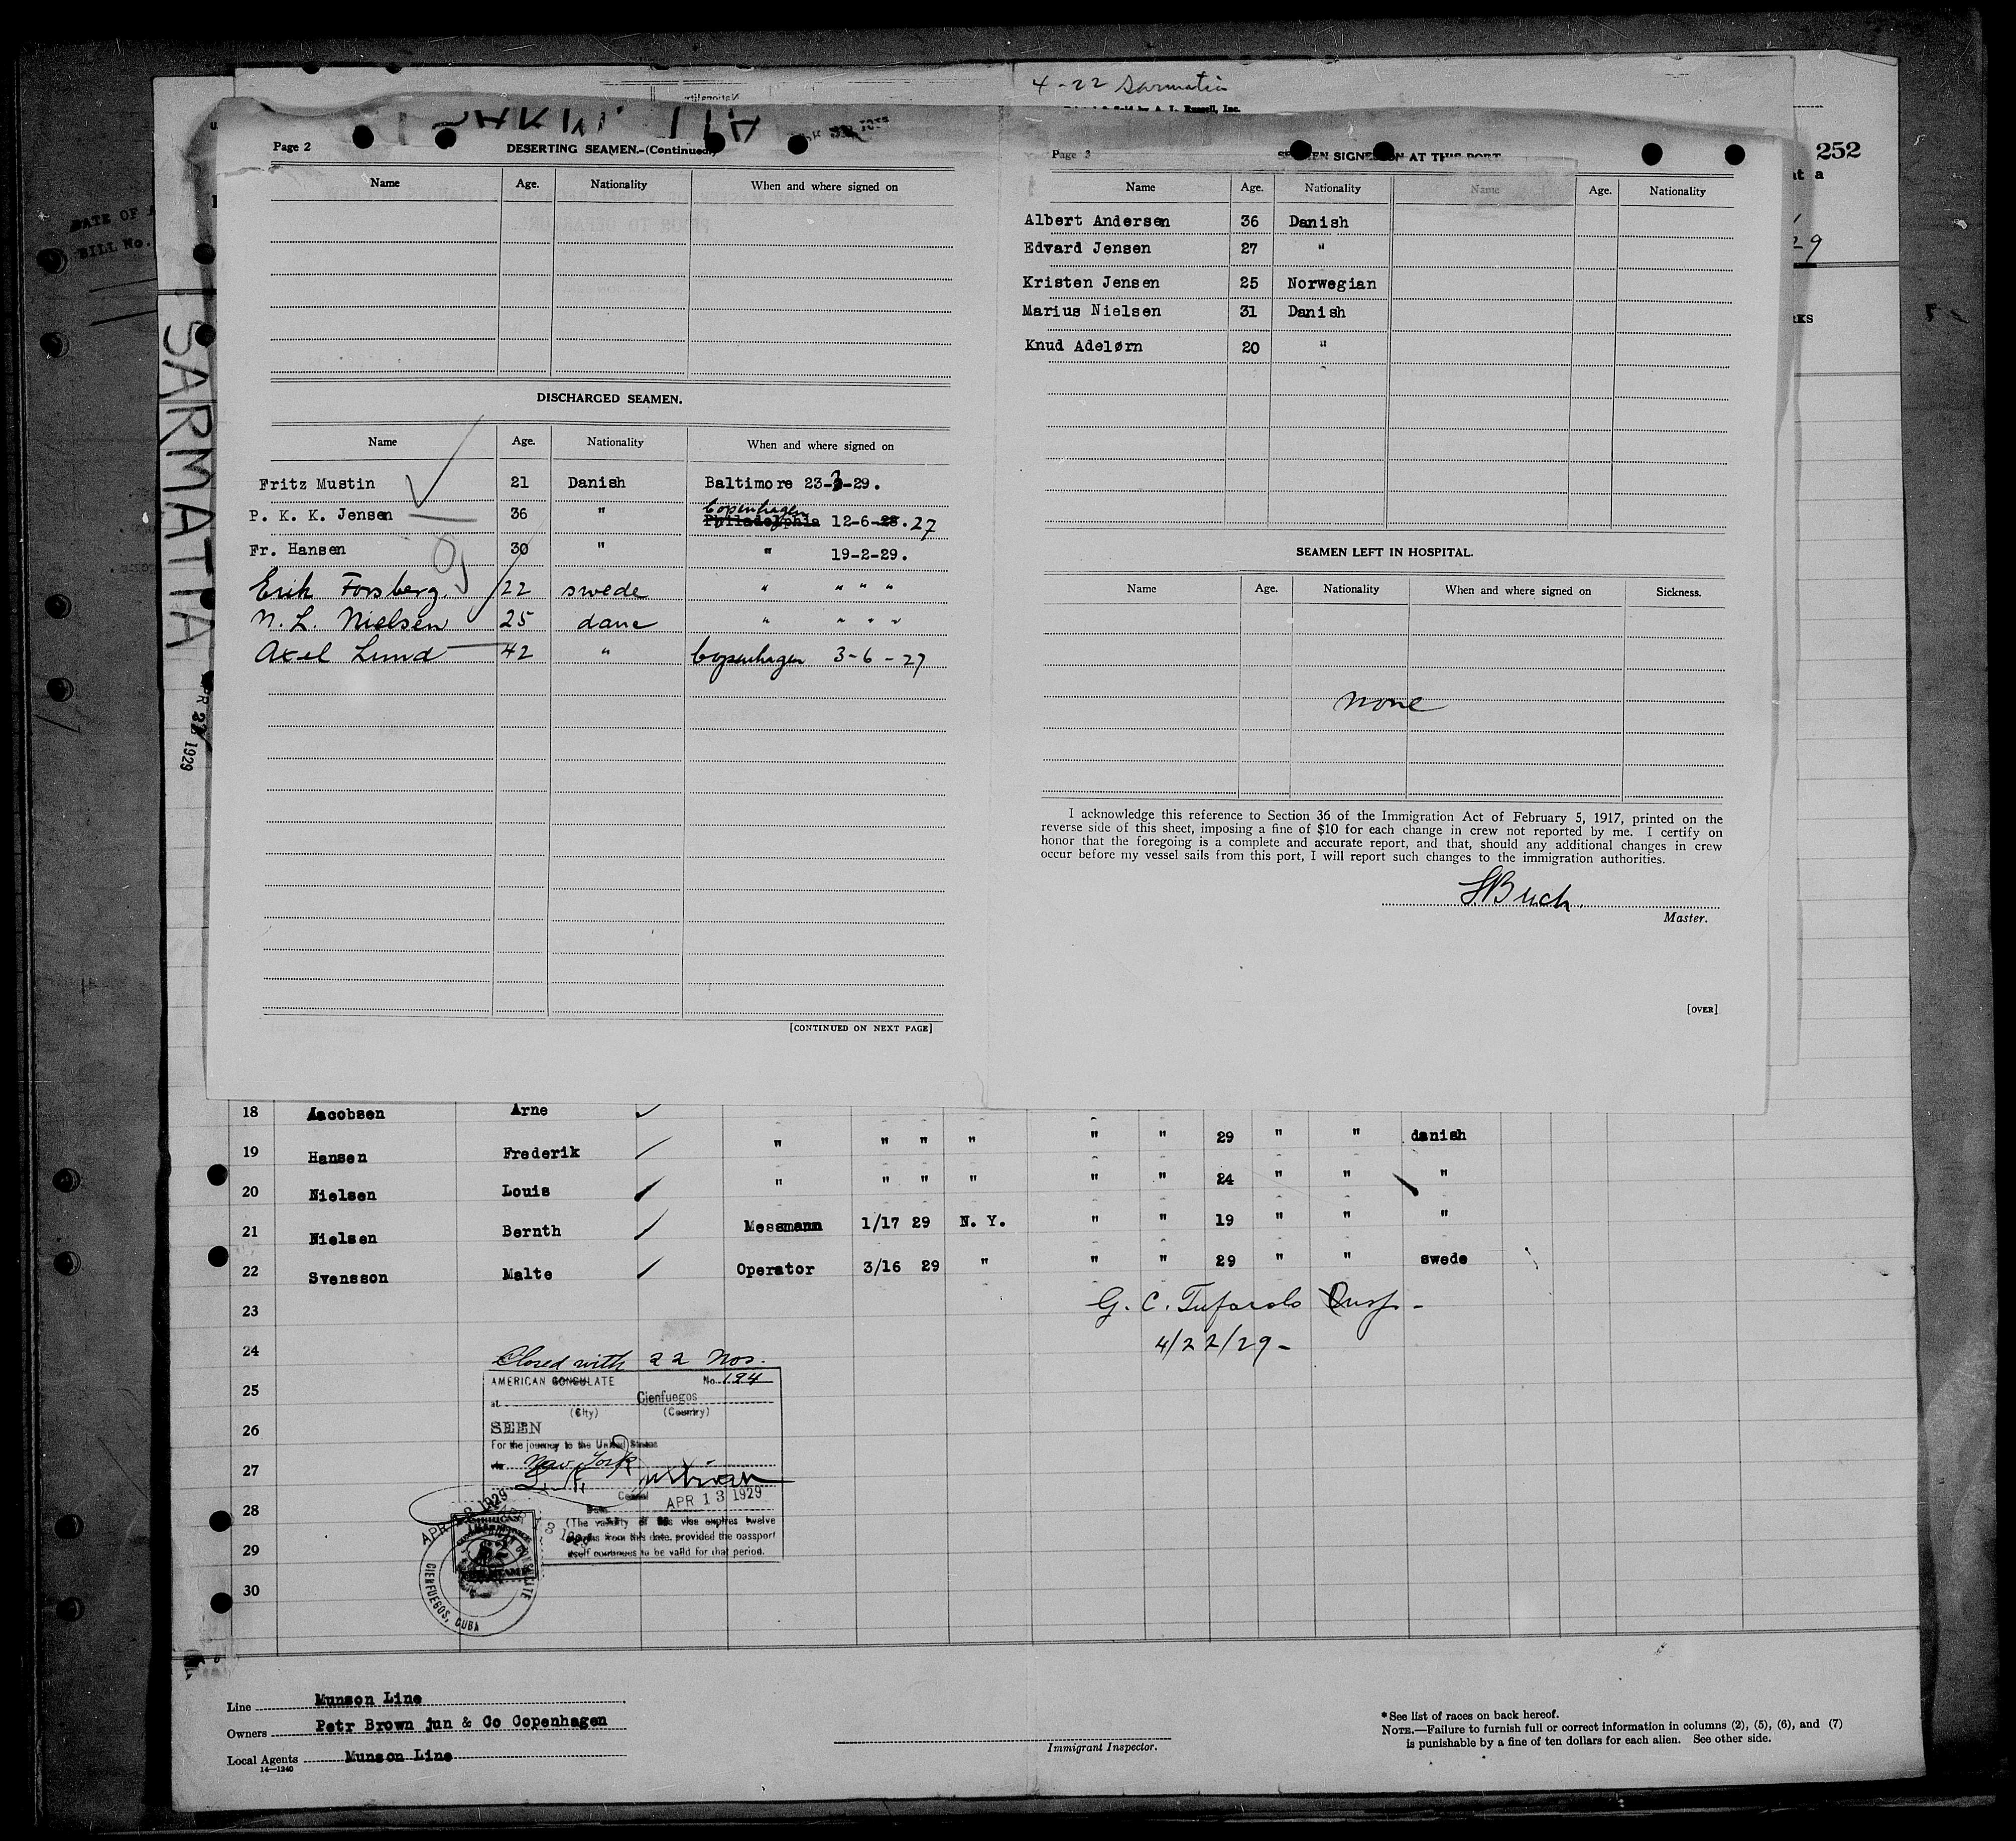 4-22 Sarmatia
252
Page 2
DESERTING SEAMEN.-(Continued)
Name Age. Nationality When and where signed on
DISCHARGED SEAMEN.
Name Age. Nationality When and where signed on
Fritz Mustin 21 Danish Baltimore 23-3-29.
Copenhagen
P. K. K. Jensen 36 " Philadelphia 12-6-28.27
Fr. Hansen 30 " " 19-2-29.
Erik Forsberg 22 swede " " " "
N. L. Nielsen 25 dane " " " "
Axel Lund 42 " Copenhagen 3-6-27
[CONTINUED ON NEXT PAGE]
Page 3
SEAMEN SIGNED ON AT THIS PORT
Name Age. Nationality Name Age. Nationality
Albert Andersen 36 Danish
Edvard Jensen 27 "
Kristen Jensen 25 Norwegian
Marius Nielsen 31 Danish
Knud Adelørn 20 "
SEAMEN LEFT IN HOSPITAL.
Name Age. Nationality When and where signed on Sickness.
none
I acknowledge this reference to Section 36 of the Immigration Act of February 5, 1917, printed on the
reverse side of this sheet, imposing a fine of $10 for each change in crew not reported by me. I certify on
honor that the foregoing is a complete and accurate report, and that, should any additional changes in crew
occur before my vessel sails from this port, I will report such changes to the immigration authorities.
Buch
Master.
[OVER]
SARMATIA
1929
DATE OF
BILL No.
18 Aacobsen Arne
19 Hansen Frederik " " " " " " 29 " " danish
20 Nielsen Louis " " " " " " 24 " " "
21 Nielsen Bernth Messmann 1/17 29 N. Y. " " 19 " " "
22 Svensson Malte Operator 3/16 29 " " " 29 " " swede
23
G. C. Tufarolo Insp-
4/22/29-
24
25
26
27
28
29
30
Closed with 22 Nos.
AMERICAN CONSULATE No. 194
at Cienfuegos
(City) (Country)
SEEN
For the journey to the United States
New York
Consul
Date APR 13 1929
(The validity of this visa expires twelve
months from this date, provided the passport
itself continues to be valid for that period.
CIENFUEGOS, CUBA
Line Munson Line
Owners Petr Brown jun & Co Copenhagen
Local Agents Munson Line
14—1240
Immigrant Inspector.
*See list of races on back hereof.
NOTE.—Failure to furnish full or correct information in columns (2), (5), (6), and (7)
is punishable by a fine of ten dollars for each alien. See other side.